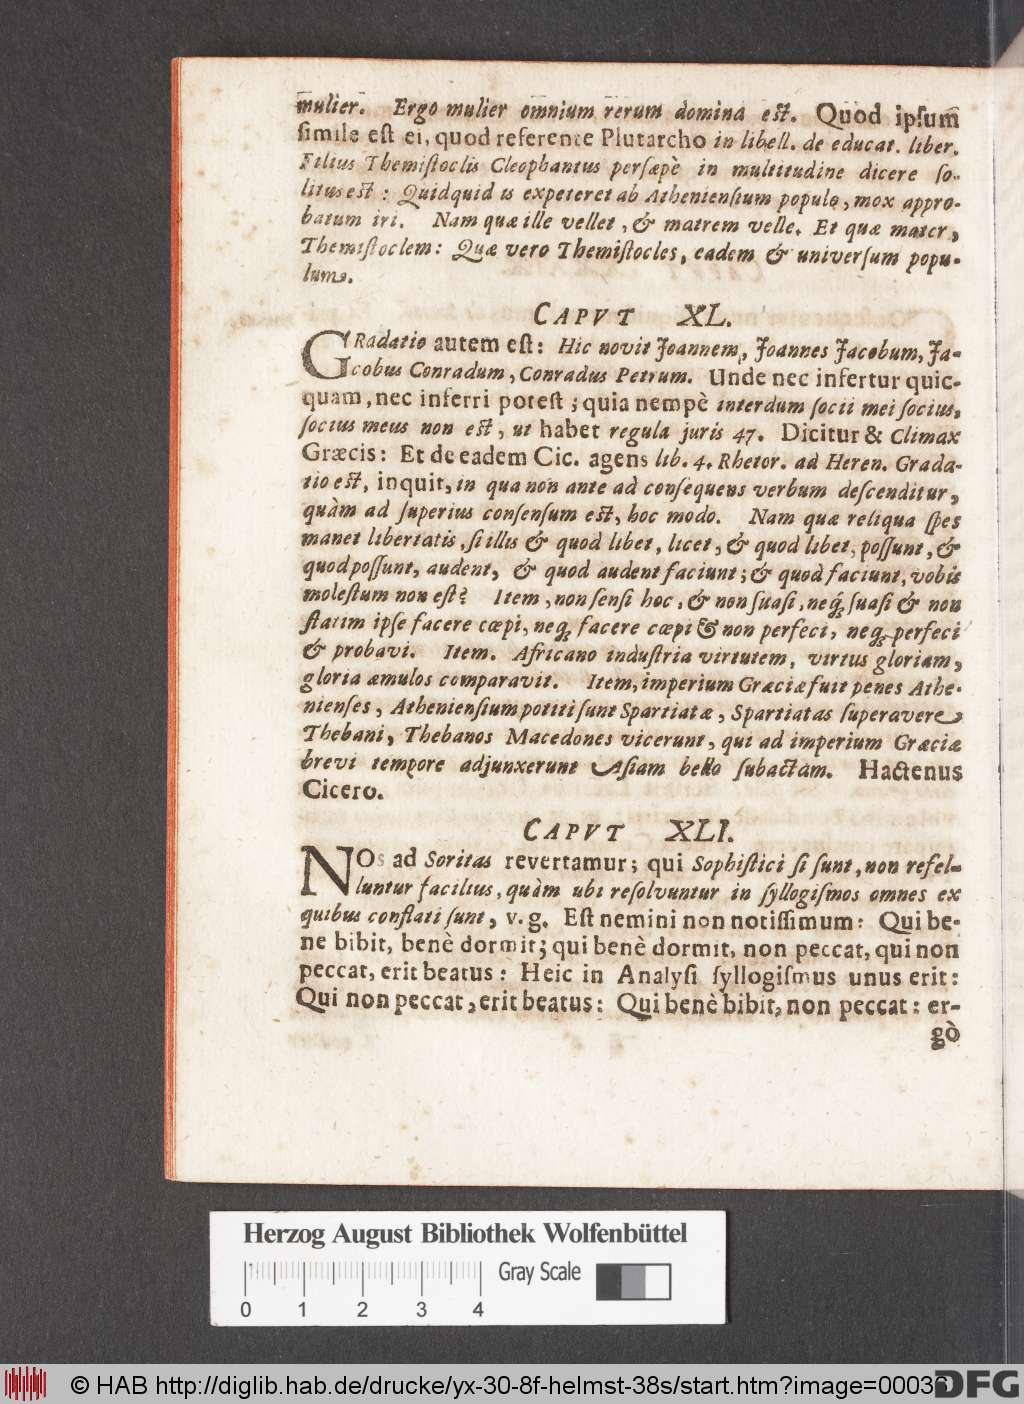 mulier. Ergo mulier omnium rerum domina est. Quod ipsum
simile est ei, quod referente Plutarcho in libell. de educat. liber.
Filius Themistoclis Cleophantus persæpè in multitudine dicere so-
litus est: Quidquid is expeteret ab Atheniensium populo, mox appro-
batum iri. Nam quæ ille vellet, & matrem velle. Et quæ mater,
Themistoclem: Quæ vero Themistocles, eadem & universum popu-
lum.
CAPVT XL.
GRadatio autem est: Hic novit Joannem, Joannes Jacobum, Ja-
cobus Conradum, Conradus Petrum. Unde nec infertur quic-
quam, nec inferri potest; quia nempè interdum socii mei socius,
socius meus non est, ut habet regula juris 47. Dicitur & Climax
Græcis: Et de eadem Cic. agens lib. 4. Rhetor. ad Heren. Grada-
tio est, inquit, in qua non ante ad consequens verbum descenditur,
quàm ad superius consensum est, hoc modo. Nam quæ reliqua spes
manet libertatis, si illis & quod libet, licet, & quod libet, possunt, &
quod possunt, audent, & quod audent faciunt; & quod faciunt, vobis
molestum non est? Item, non sensi hoc, & non suasi, neq́; suasi & non
statim ipse facere cœpi, neq; facere cœpi & non perfeci, neq; perfeci
& probavi. Item. Africano industria virtutem, virtus gloriam,
gloria æmulos comparavit. Item, imperium Græciæ fuit penes Athe-
nienses, Atheniensium potiti sunt Spartiatæ, Spartiatas superavere
Thebani, Thebanos Macedones vicerunt, qui ad imperium Græciæ
brevi tempore adjunxerunt Asiam bello subactam. Hactenus
Cicero.
CAPVT XLI.
NOs ad Soritas revertamur; qui Sophistici si sunt, non refel-
luntur facilius, quàm ubi resolvuntur in syllogismos omnes ex
quibus conflati sunt, v. g. Est nemini non notissimum: Qui be-
ne bibit, benè dormit; qui benè dormit, non peccat, qui non
peccat, erit beatus: Heic in Analysi syllogismus unus erit:
Qui non peccat, erit beatus: Qui benè bibit, non peccat: er-
gò
Herzog August Bibliothek Wolfenbüttel
Gray Scale
0 1 2 3 4
© HAB http://diglib.hab.de/drucke/yx-30-8f-helmst-38s/start.htm?image=00036
DFG